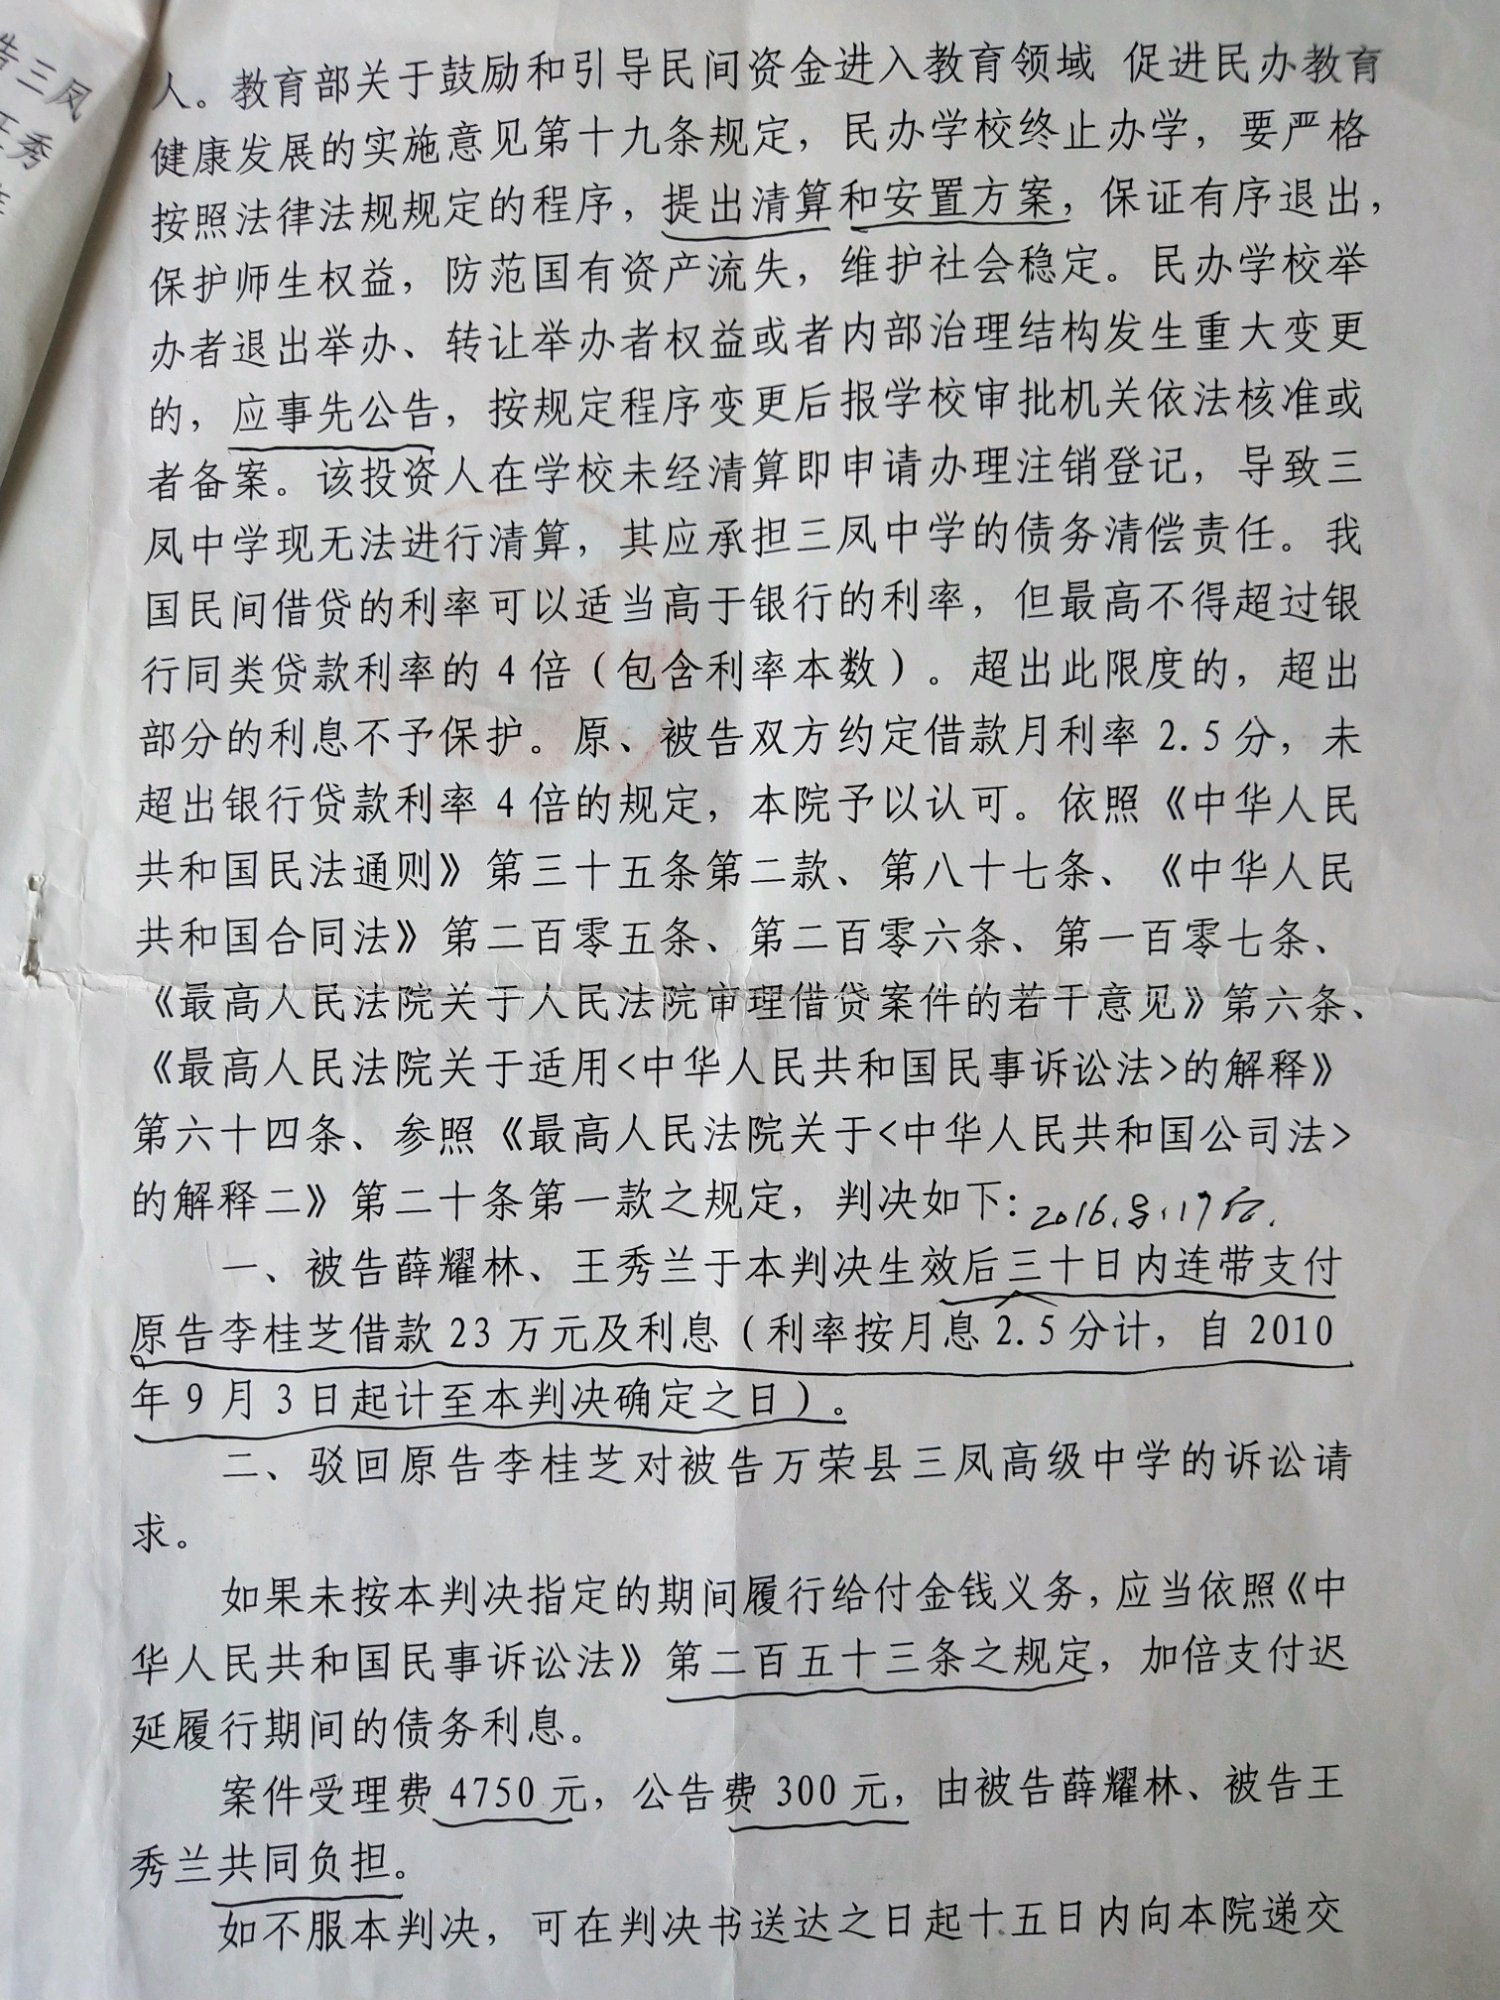 告三凤
王秀
人。教育部关于鼓励和引导民间资金进入教育领域 促进民办教育
健康发展的实施意见第十九条规定，民办学校终止办学，要严格
按照法律法规规定的程序，提出清算和安置方案，保证有序退出，
保护师生权益，防范国有资产流失，维护社会稳定。民办学校举
办者退出举办、转让举办者权益或者内部治理结构发生重大变更
的，应事先公告，按规定程序变更后报学校审批机关依法核准或
者备案。该投资人在学校未经清算即申请办理注销登记，导致三
凤中学现无法进行清算，其应承担三凤中学的债务清偿责任。我
国民间借贷的利率可以适当高于银行的利率，但最高不得超过银
行同类贷款利率的 4 倍（包含利率本数）。超出此限度的，超出
部分的利息不予保护。原、被告双方约定借款月利率 2.5 分，未
超出银行贷款利率 4 倍的规定，本院予以认可。依照《中华人民
共和国民法通则》第三十五条第二款、第八十七条、《中华人民
共和国合同法》第二百零五条、第二百零六条、第一百零七条、
《最高人民法院关于人民法院审理借贷案件的若干意见》第六条、
《最高人民法院关于适用<中华人民共和国民事诉讼法>的解释》
第六十四条、参照《最高人民法院关于<中华人民共和国公司法>
的解释二》第二十条第一款之规定，判决如下：2016.8.17
一、被告薛耀林、王秀兰于本判决生效后三十日内连带支付
原告李桂芝借款 23 万元及利息（利率按月息 2.5 分计，自 2010
年 9 月 3 日起计至本判决确定之日）。
二、驳回原告李桂芝对被告万荣县三凤高级中学的诉讼请
求。
如果未按本判决指定的期间履行给付金钱义务，应当依照《中
华人民共和国民事诉讼法》第二百五十三条之规定，加倍支付迟
延履行期间的债务利息。
案件受理费 4750 元，公告费 300 元，由被告薛耀林、被告王
秀兰共同负担。
如不服本判决，可在判决书送达之日起十五日内向本院递交